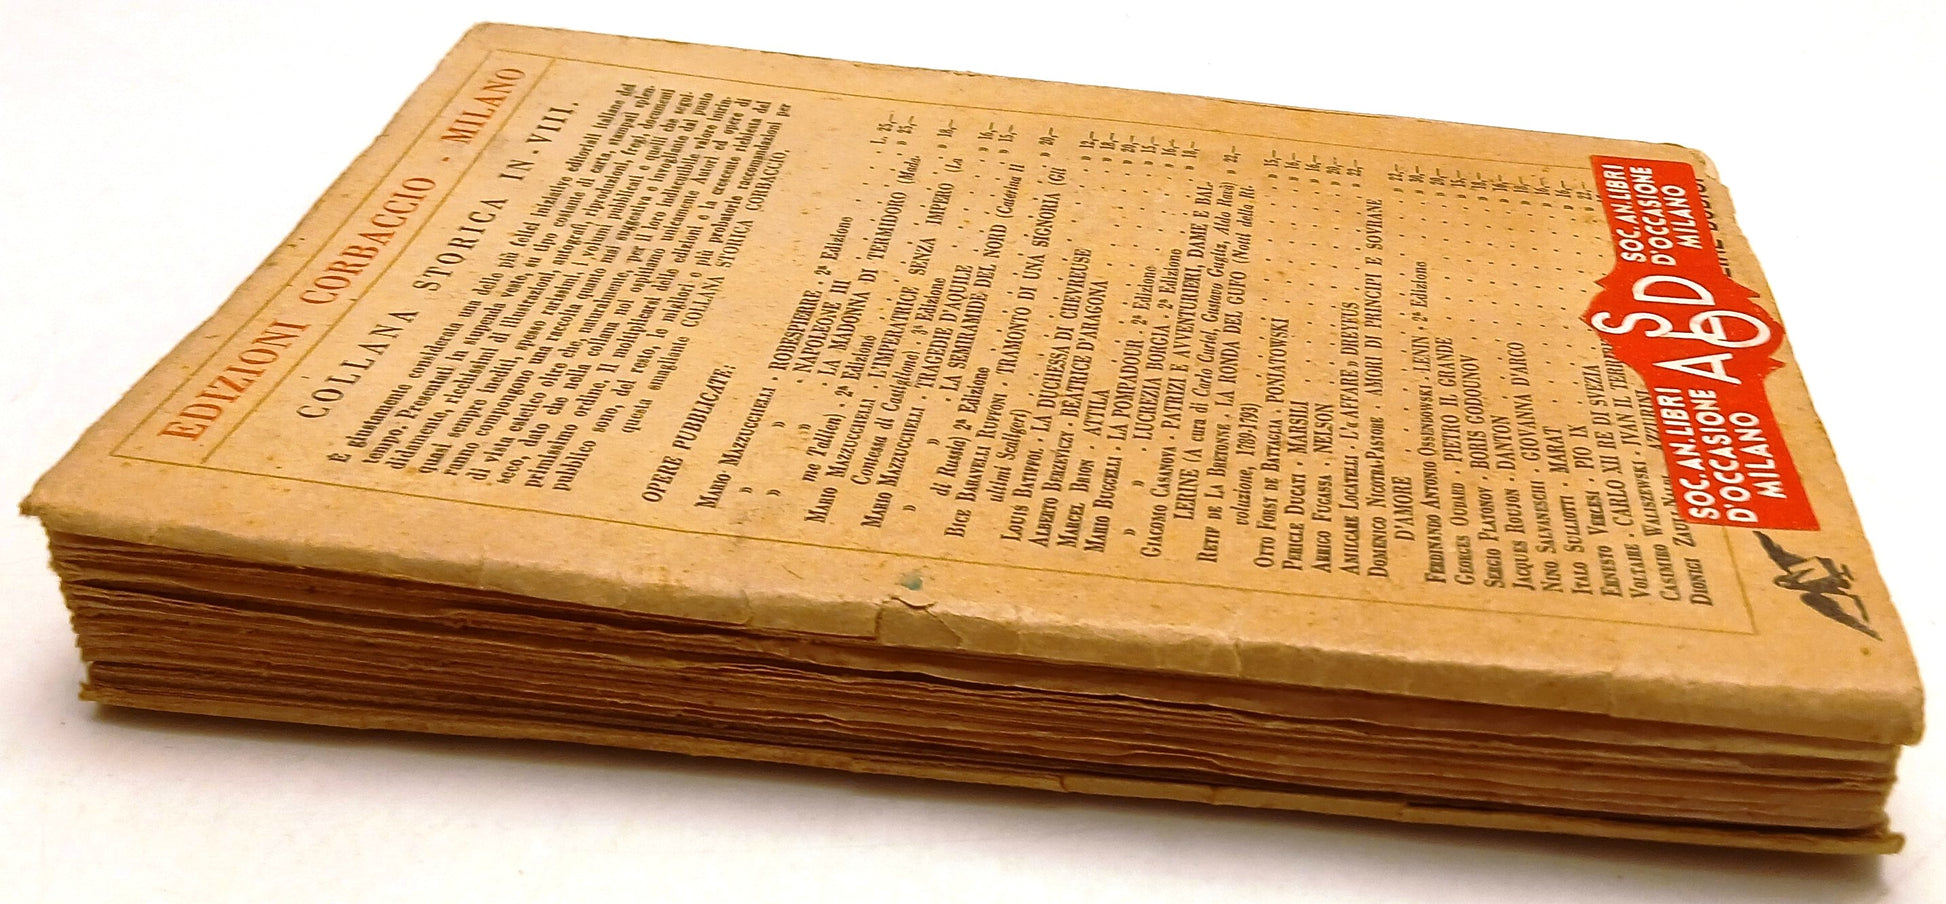 EDIZIONI CORBACCIO - MILANO
COLLANA STORICA IN-VIII.
È giustamente considerata una delle più felici iniziative editoriali italiane del
tempo. Presentati in stampati splen-
didamente, ricchissimi di illustrazioni, autografi, riproduzioni, fregi, documenti
quasi sempre inediti, spesso rarissimi, i volumi pubblicati e quelli che segui-
ranno compongono una raccolta quanto mai suggestiva e invogliante dal punto
di vista estetico oltre che, naturalmente, per il loro indiscutibile valore intrin-
seco, dato che nella collana noi ospitiamo unicamente Autori ed opere di
primissimo ordine. Il moltiplicarsi delle edizioni e la crescente richiesta del
pubblico sono, del resto, le migliori e più probatorie raccomandazioni per
questa smagliante COLLANA STORICA CORBACCIO.
OPERE PUBBLICATE:
MARIO MAZZUCCHELLI - ROBESPIERRE - 2ª Edizione L. 25,—
» » - NAPOLEONE III » 25,—
» » - LA MADONNA DI TERMIDORO (Mada-
me Tallien) - 2ª Edizione » 18,—
MARIO MAZZUCCHELLI - L'IMPERATRICE SENZA IMPERO (La
Contessa di Castiglione) - 3ª Edizione » 16,—
MARIO MAZZUCCHELLI - TRAGEDIE D'AQUILE » 15,—
» » - LA SEMIRAMIDE DEL NORD (Caterina II
di Russia) 2ª Edizione » 20,—
BICE BARAVELLI RUFFONI - TRAMONTO DI UNA SIGNORIA (Gli
ultimi Scaligeri) » 12,—
LOUIS BATIFFOL - LA DUCHESSA DI CHEVREUSE » 18,—
ALBERTO BERZEVICZY - BEATRICE D'ARAGONA » 20,—
MARCEL BRION - ATTILA » 15,—
MARIO BUGGELLI - LA POMPADOUR - 2ª Edizione » 16,—
» » - LUCREZIA BORGIA - 2ª Edizione » 18,—
GIACOMO CASANOVA - PATRIZI E AVVENTURIERI, DAME E BAL-
LERINE (A cura di Carlo Curiel, Gustavo Gugitz, Aldo Ravà) » 22,—
RETIF DE LA BRETONNE - LA RONDA DEL GUFO (Notti della Ri-
voluzione, 1789-1793) » 15,—
OTTO FORST DE BATTAGLIA - PONIATOWSKI » 16,—
PERICLE DUCATI - MARSILI » 16,—
ARRIGO FUGASSA - NELSON » 20,—
AMILCARE LOCATELLI - L'« AFFARE » DREYFUS » 22,—
DOMENICO NICOTRA-PASTORE - AMORI DI PRINCIPI E SOVRANE
D'AMORE
FERDINANDO ANTONIO OSSENDOWSKI - LENIN - 2ª Edizione
GEORGES OUDARD - PIETRO IL GRANDE
SERGIO PLATONOV - BORIS GODOUNOV
JACQUES ROUJON - DANTON
NINO SALVANESCHI - GIOVANNA D'ARCO
ITALO SULLIOTTI - MARAT
ERNESTO VERCESI - PIO IX
VOLTAIRE - CARLO XII RE DI SVEZIA
CASIMIRO WALISZEWSKI - IVAN IL TERRIBILE
DIONIGI
SOC. AN. LIBRI
D'OCCASIONE
MILANO
ASDO
SOC. AN. LIBRI
D'OCCASIONE
MILANO